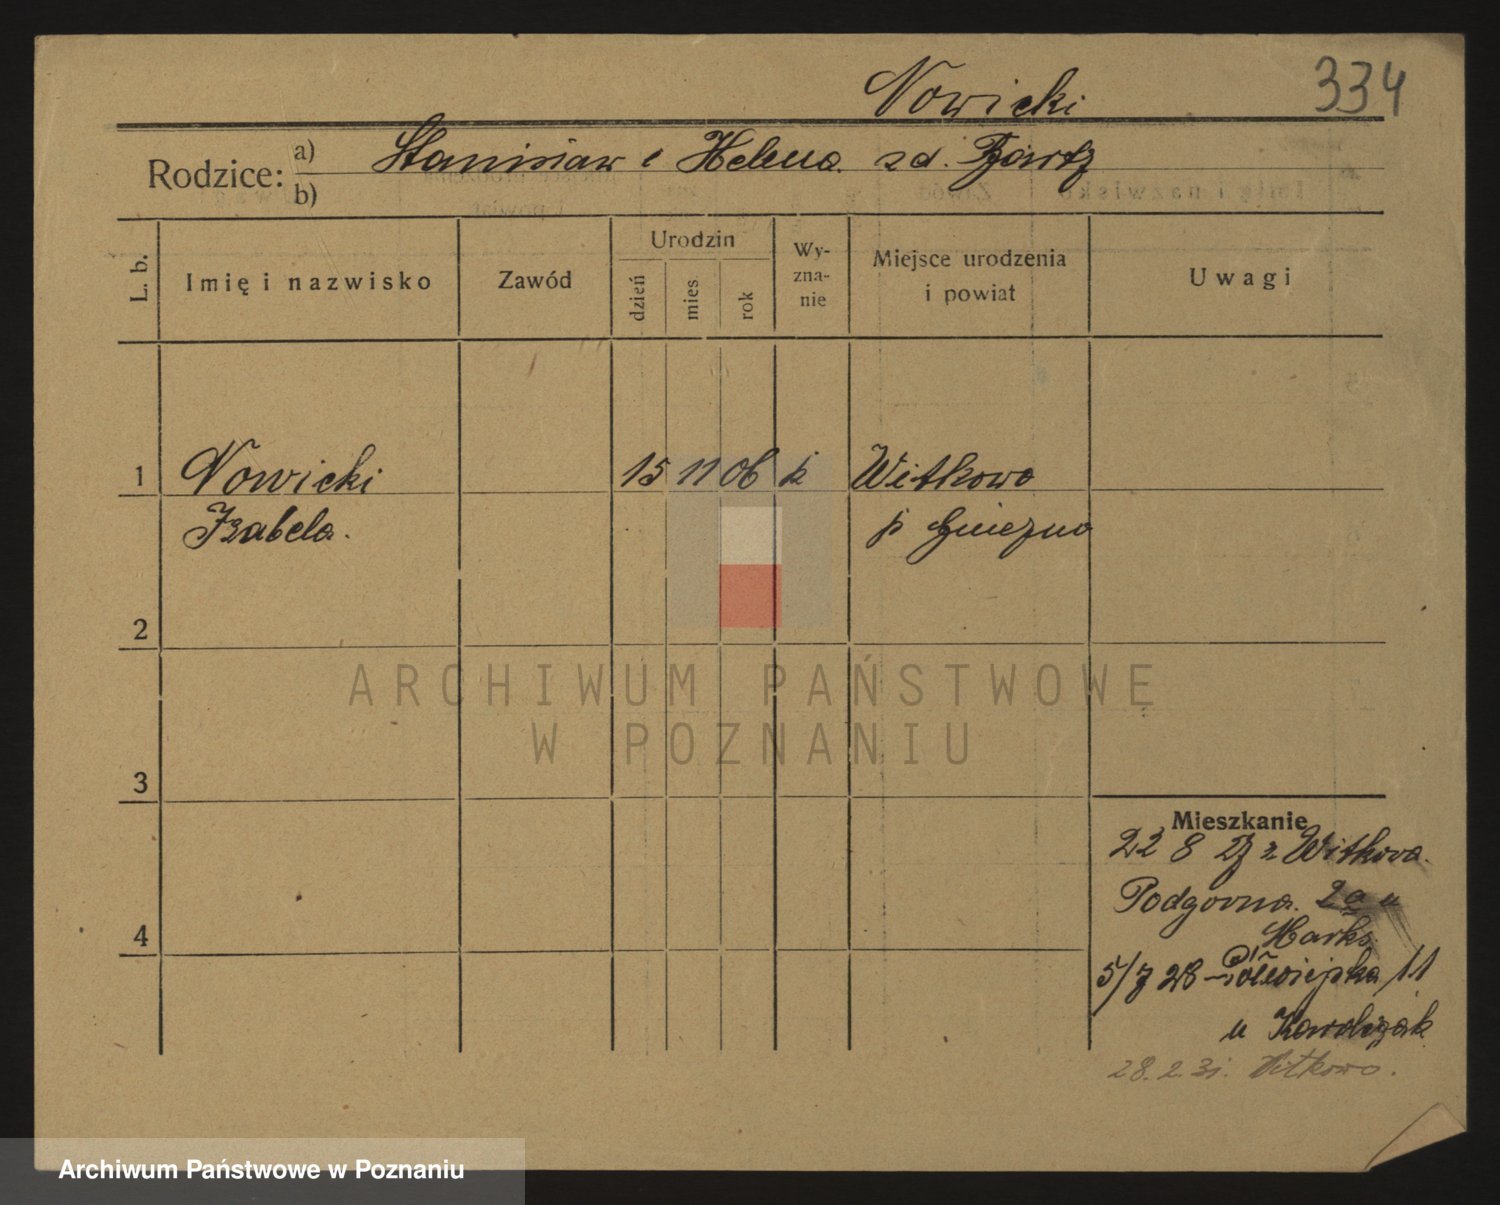 Nowicki
334
Rodzice:
a) Stanisław i Helena zd. Bartz
b)
L. b.
Imię i nazwisko
Zawód
Urodzin
dzień
mies.
rok
Wy-
zna-
nie
Miejsce urodzenia
i powiat
Uwagi
1 Nowicki 15 11 06 k Witkowo
Izabela. p Gniezno
2
3
4
ARCHIWUM PAŃSTWOWE
W POZNANIU
Mieszkanie
22 8 27 z Witkowa.
Podgórna. 2a u
Marks
5/7 28 Półwiejska 11
u Kawalczak
28.2.31. Witkowo.
Archiwum Państwowe w Poznaniu